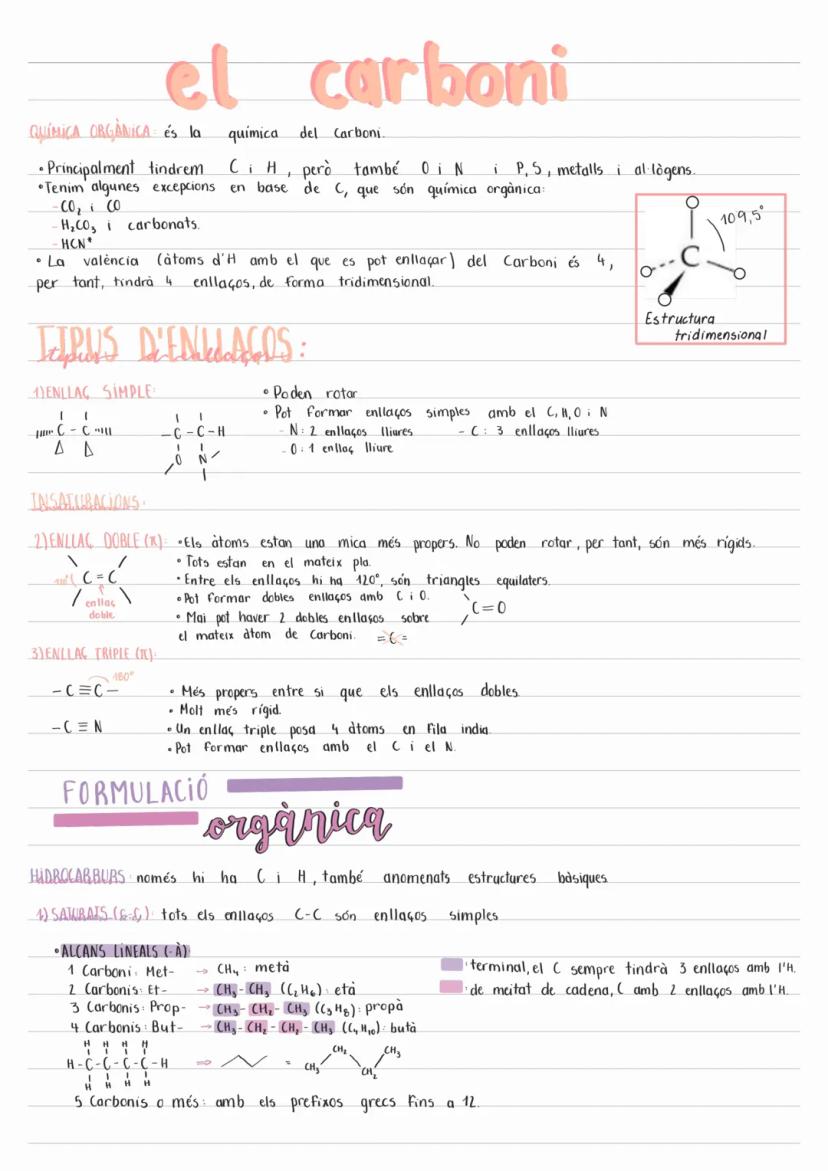 el carboni
QUÍMICA ORGÀNICA: és la química del Carboni.
• Principalment tindrem C i H, però també O i N i P, S, metalls i al·lògens.
• Tenim algunes excepcions en base de C, que són química orgànica:
- CO₂ i CO
- H₂CO₃ i carbonats.
- HCN*
• La valència (àtoms d'H amb el que es pot enllaçar) del Carboni és 4,
per tant, tindrà 4 enllaços, de forma tridimensional.
109,5°
C
Estructura
tridimensional
TIPUS D'ENLLAÇOS:
tipus d'enllaços
1) ENLLAÇ SIMPLE:
• Poden rotar
• Pot formar enllaços simples amb el C, H, O i N
- N: 2 enllaços lliures - C: 3 enllaços lliures
- O: 1 enllaç lliure
C - C
- C - C - H
O N
INSATURACIONS:
2) ENLLAÇ DOBLE (π): • Els àtoms estan una mica més propers. No poden rotar, per tant, són més rígids.
• Tots estan en el mateix pla.
• Entre els enllaços hi ha 120°, són triangles equilaters.
• Pot formar dobles enllaços amb C i O.
C = O
• Mai pot haver 2 dobles enllaços sobre
el mateix àtom de Carboni. = C =
C = C
enllaç
doble
3) ENLLAÇ TRIPLE (π):
180°
- C ≡ C -
• Més propers entre si que els enllaços dobles.
• Molt més rígid.
- C ≡ N
• Un enllaç triple posa 4 àtoms en fila india.
• Pot formar enllaços amb el C i el N.
FORMULACIÓ
orgànica
HIDROCARBURS: només hi ha C i H, també anomenats estructures bàsiques
1) SATURATS (C-C): tots els enllaços C-C són enllaços simples
• ALCANS LINEALS (-À)
1 Carboni: Met- → CH₄: metà
2 Carbonis: Et- → CH₃ - CH₃ (C₂H₆): età
3 Carbonis: Prop- → CH₃ - CH₂ - CH₃ (C₃H₈): propà
4 Carbonis: But- → CH₃ - CH₂ - CH₂ - CH₃ (C₄H₁₀): butà
: terminal, el C sempre tindrà 3 enllaços amb l'H.
: de meitat de cadena, C amb 2 enllaços amb l'H.
H H H H
H - C - C - C - C - H ⇒ =
H H H H
CH₃ CH₂ CH₂ CH₃
5 Carbonis o més: amb els prefixos grecs fins a 12.